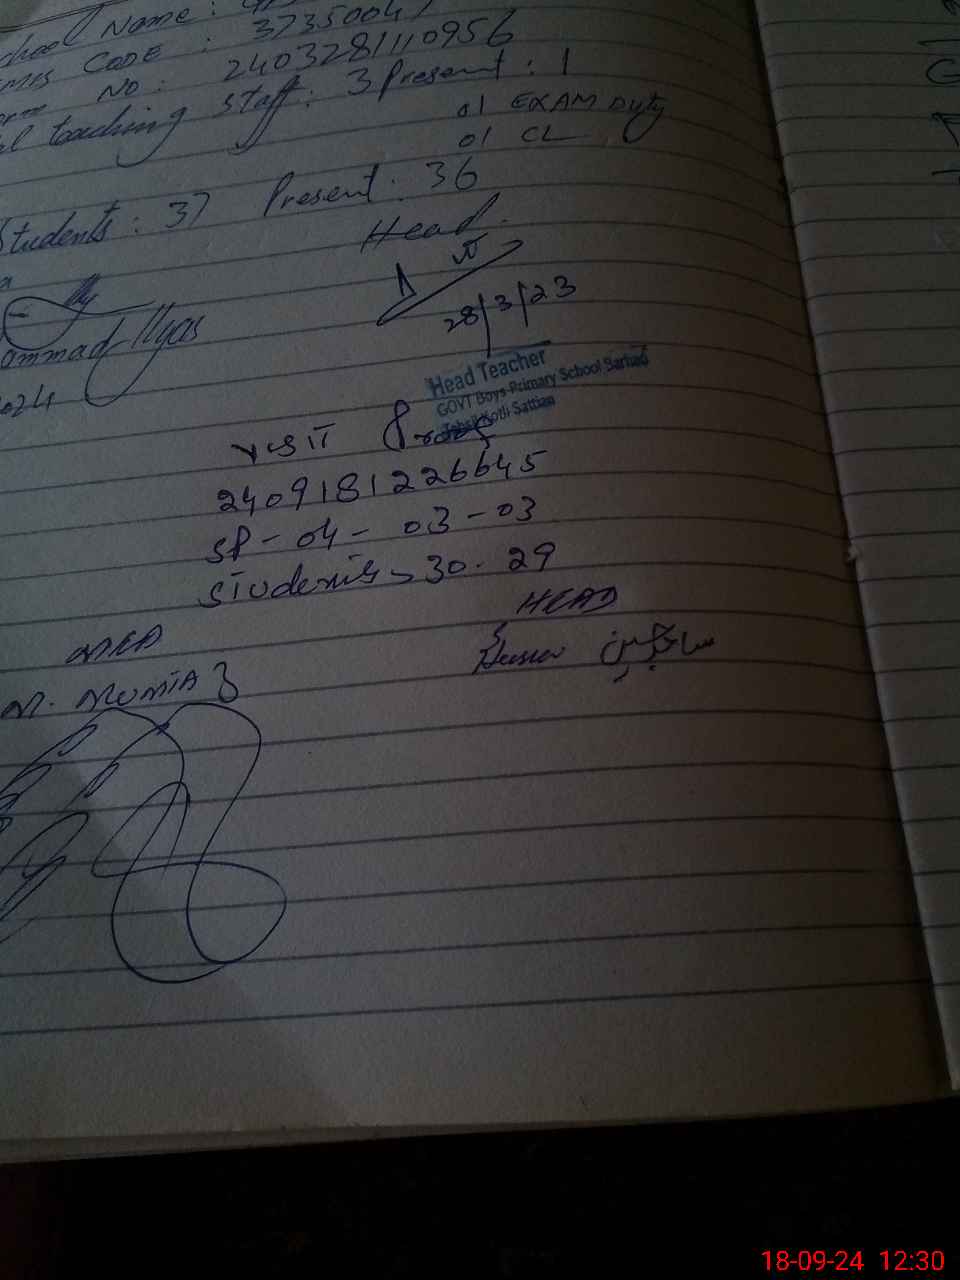 chool Name :
EMIS CODE : 37350047
No : 2403281110956
teaching staff : 3 Present : 1
01 EXAM Duty
01 CL
Students : 37 Present : 36
Head
28/3/23
ammad Ilyas
2024
Head Teacher
GOVT Boys Primary School Sarhad
Tehsil Kotli Sattian
VISIT Proof
2409181226645
SP - 04 - 03 - 03
Students → 30 - 29
MEA
HEAD
M. MUMTAZ
18-09-24 12:30